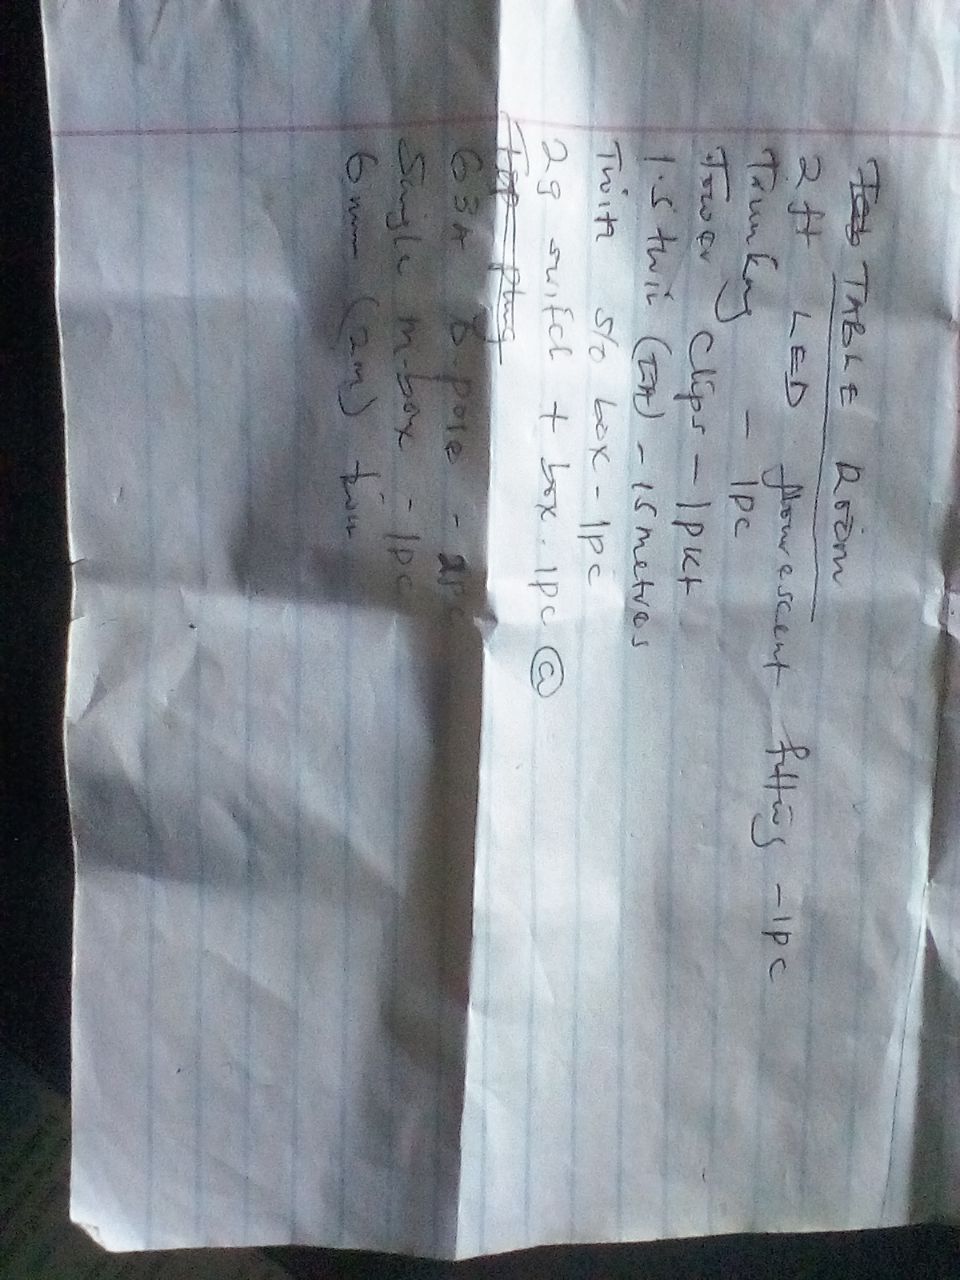 TABLE ROOM
2ft LED flourescent fitting - 1pc
Trunking - 1pc
Tower Clips - 1pkt
1.5 twin - 15 metres
Twin s/o box - 1pc
2g switch + box. 1pc @
Top plug
63A D. pole - 1pc
Single m.box - 1pc
6mm (2m)